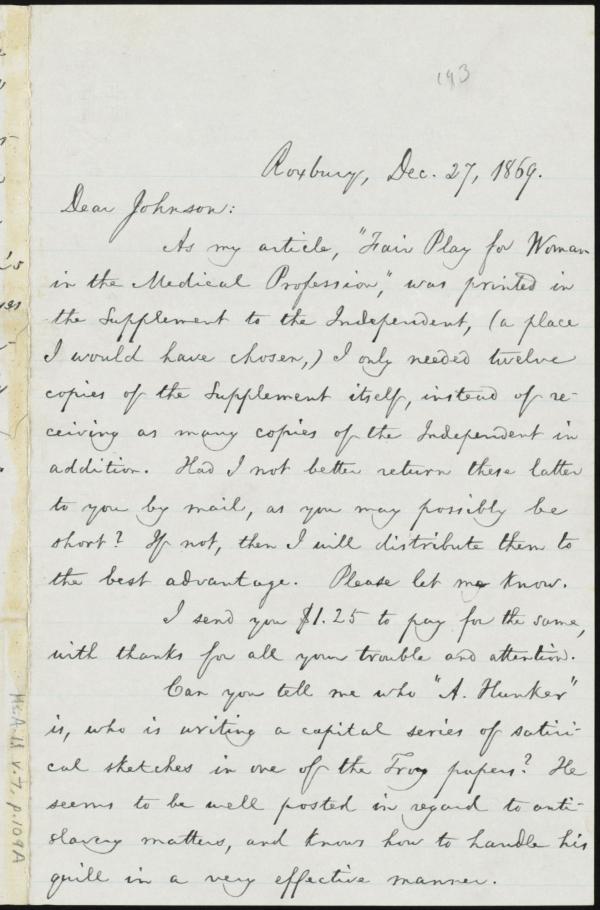 193
Roxbury, Dec. 27, 1869.
Dear Johnson:
As my article, "Fair Play for Woman
in the Medical Profession," was printed in
the Supplement to the Independent, (a place
I would have chosen,) I only needed twelve
copies of the Supplement itself, instead of re-
ceiving as many copies of the Independent in
addition. Had I not better return these latter
to you by mail, as you may possibly be
short? If not, then I will distribute them to
the best advantage. Please let me know.
I send you $1.25 to pay for the same,
with thanks for all your trouble and attention.
Can you tell me who "A. Hunker"
is, who is writing a capital series of satiri-
cal sketches in one of the Troy papers? He
seems to be well posted in regard to anti-
slavery matters, and knows how to handle his
quill in a very effective manner.
v.7, p.109A